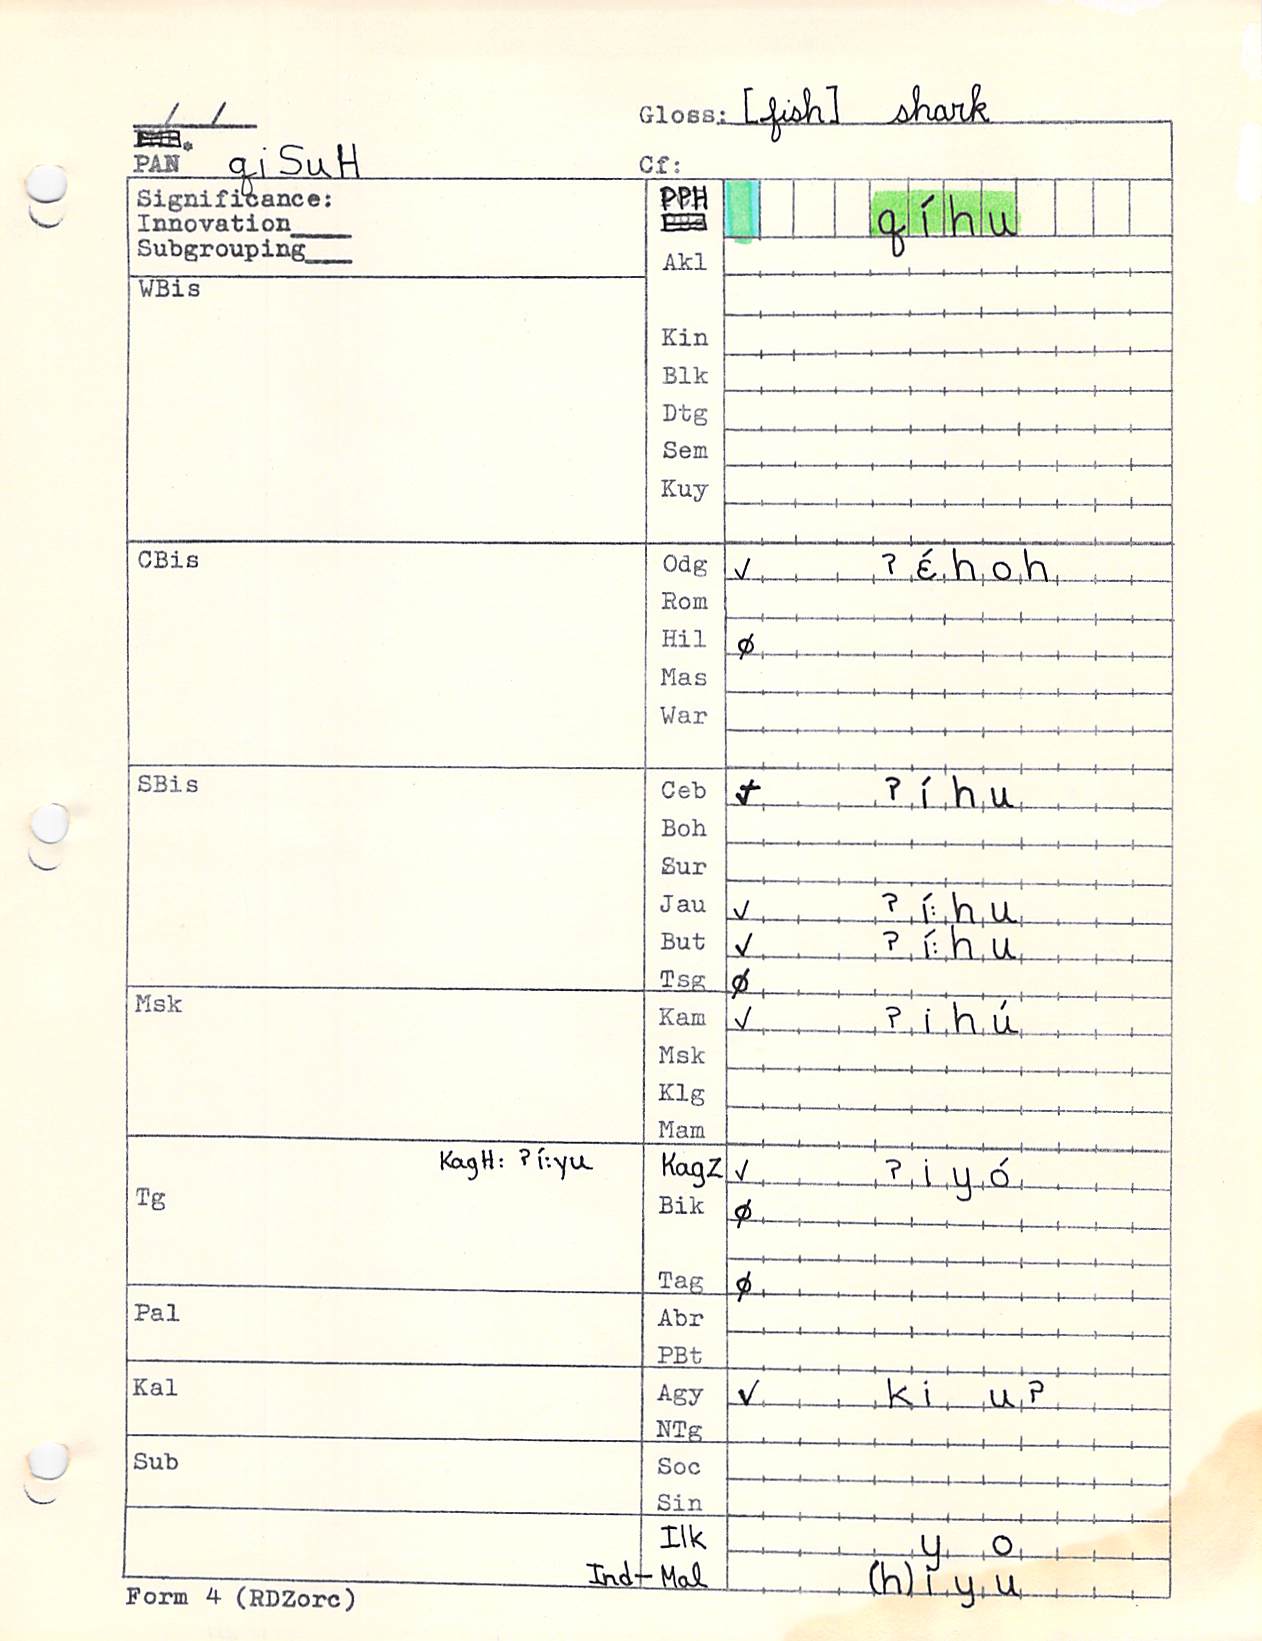 Gloss: [fish] shark
PAN qiSuH
Cf:
Significance:
Innovation
Subgrouping
PPH qíhu
Akl
WBis
Kin
Blk
Dtg
Sem
Kuy
CBis
Odg ✓ ʔɛ́hoh
Rom
Hil ∅
Mas
War
SBis
Ceb ✓ ʔíhu
Boh
Sur
Jau ✓ ʔí:hu
But ✓ ʔí:hu
Tsg ∅
Msk
Kam ✓ ʔihú
Msk
Klg
Mam
KagH: ʔí:yu
KagZ ✓ ʔiyó
Tg
Bik ∅
Tag ∅
Pal
Abr
PBt
Kal
Agy ✓ ki uʔ
NTg
Sub
Soc
Sin
Ilk y o
Ind-Mal (h)iyu
Form 4 (RDZorc)